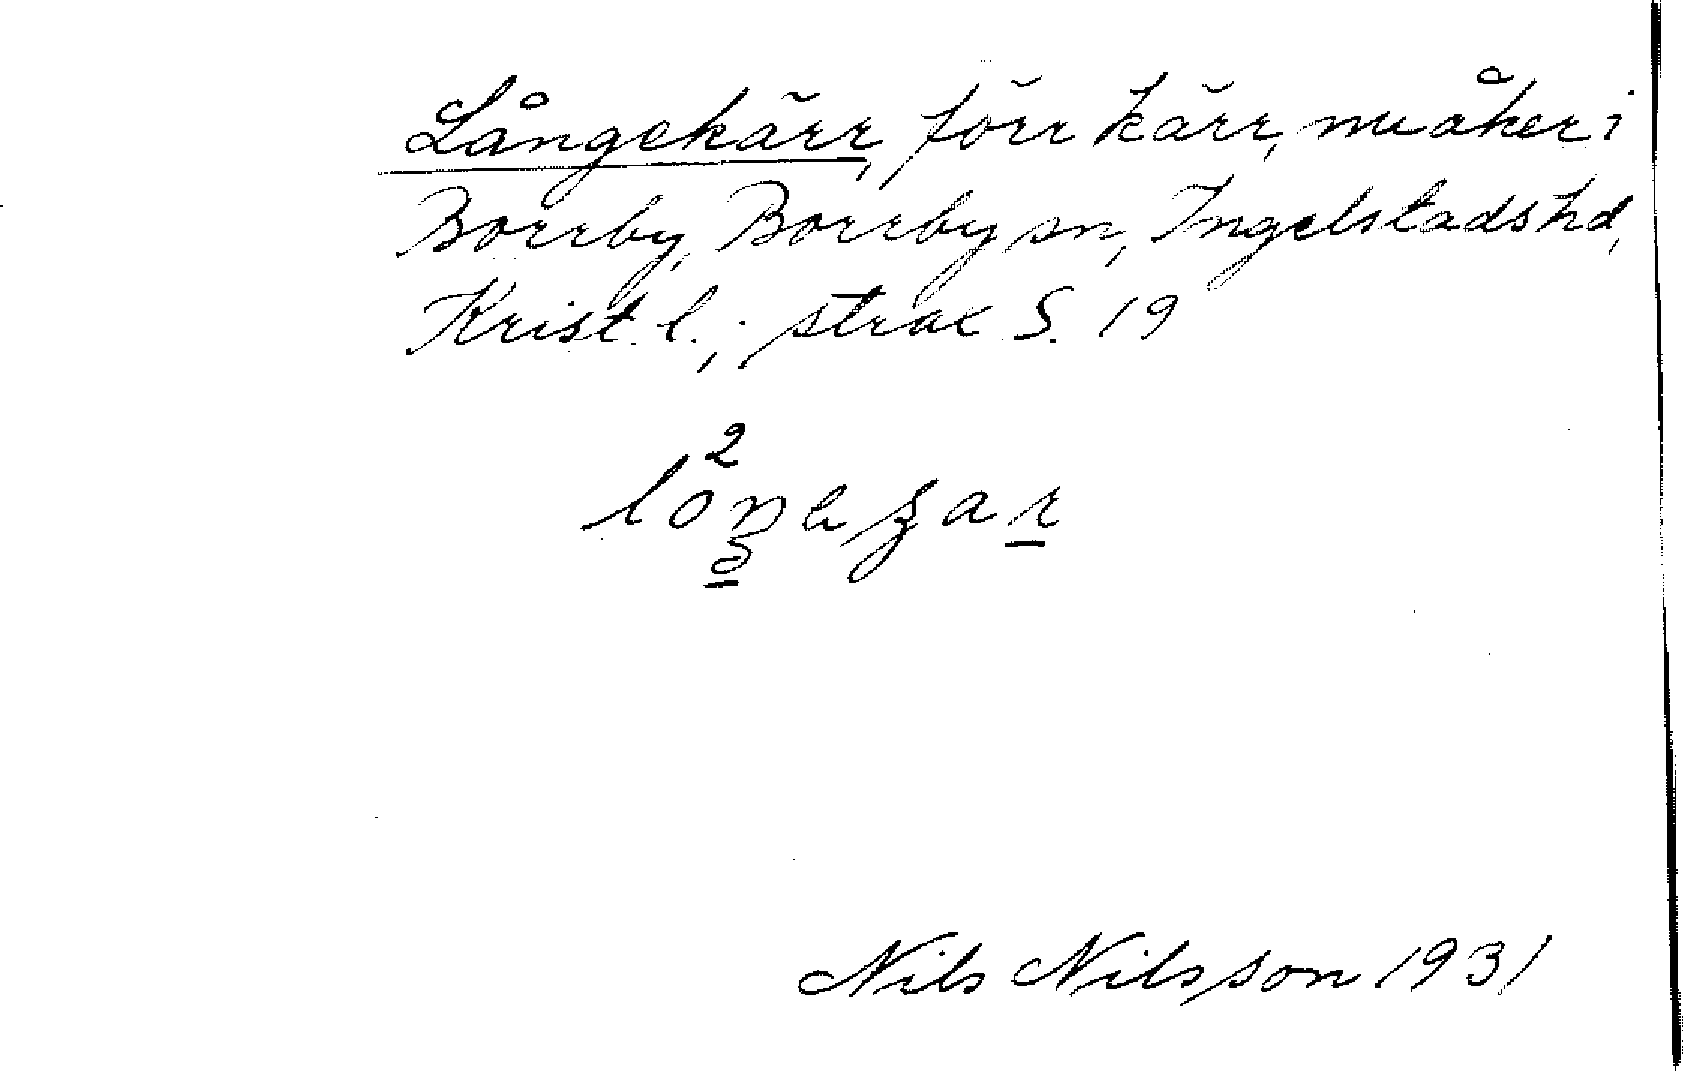 Långekärr, förr kärr, nu åker i
Borrby, Borrby sn, Ingelstads hd,
Krist. l.; strax S. 19
Nils Nilsson 1931